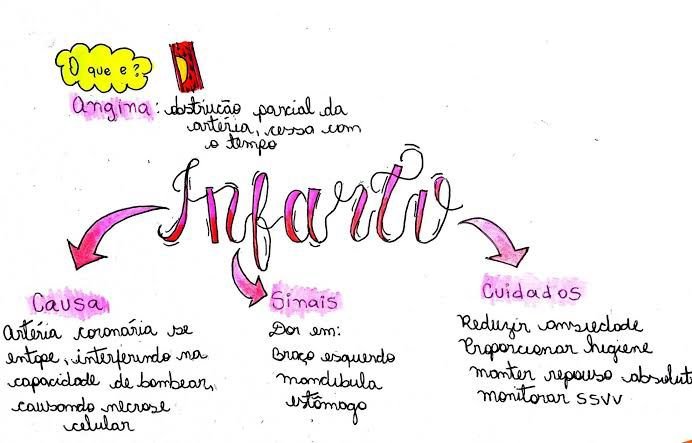 O que e?
Angina: obstrução parcial da
artéria, cessa com
o tempo
Infarto
Causa
Artéria coronária se
entope, interferindo na
capacidade de bombear,
causando necrose
celular
Sinais
Dor em:
Braço esquerdo
mandíbula
estômago
Cuidados
Reduzir ansiedade
Proporcionar higiene
manter repouso absolut
monitorar SSVV